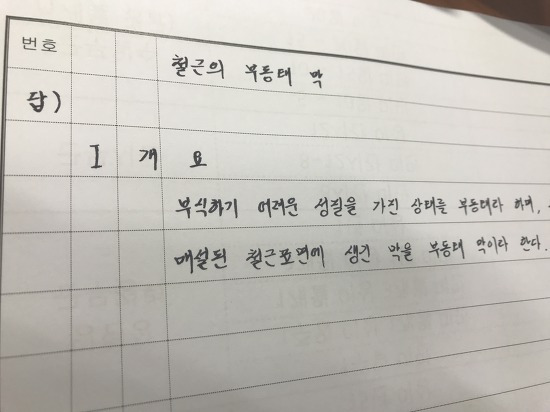 번호
철근의 부동태 막
답)
I 개 요
부식하기 어려운 성질을 가진 상태를 부동태라 하며,
매설된 철근표면에 생긴 막을 부동태 막이라 한다.